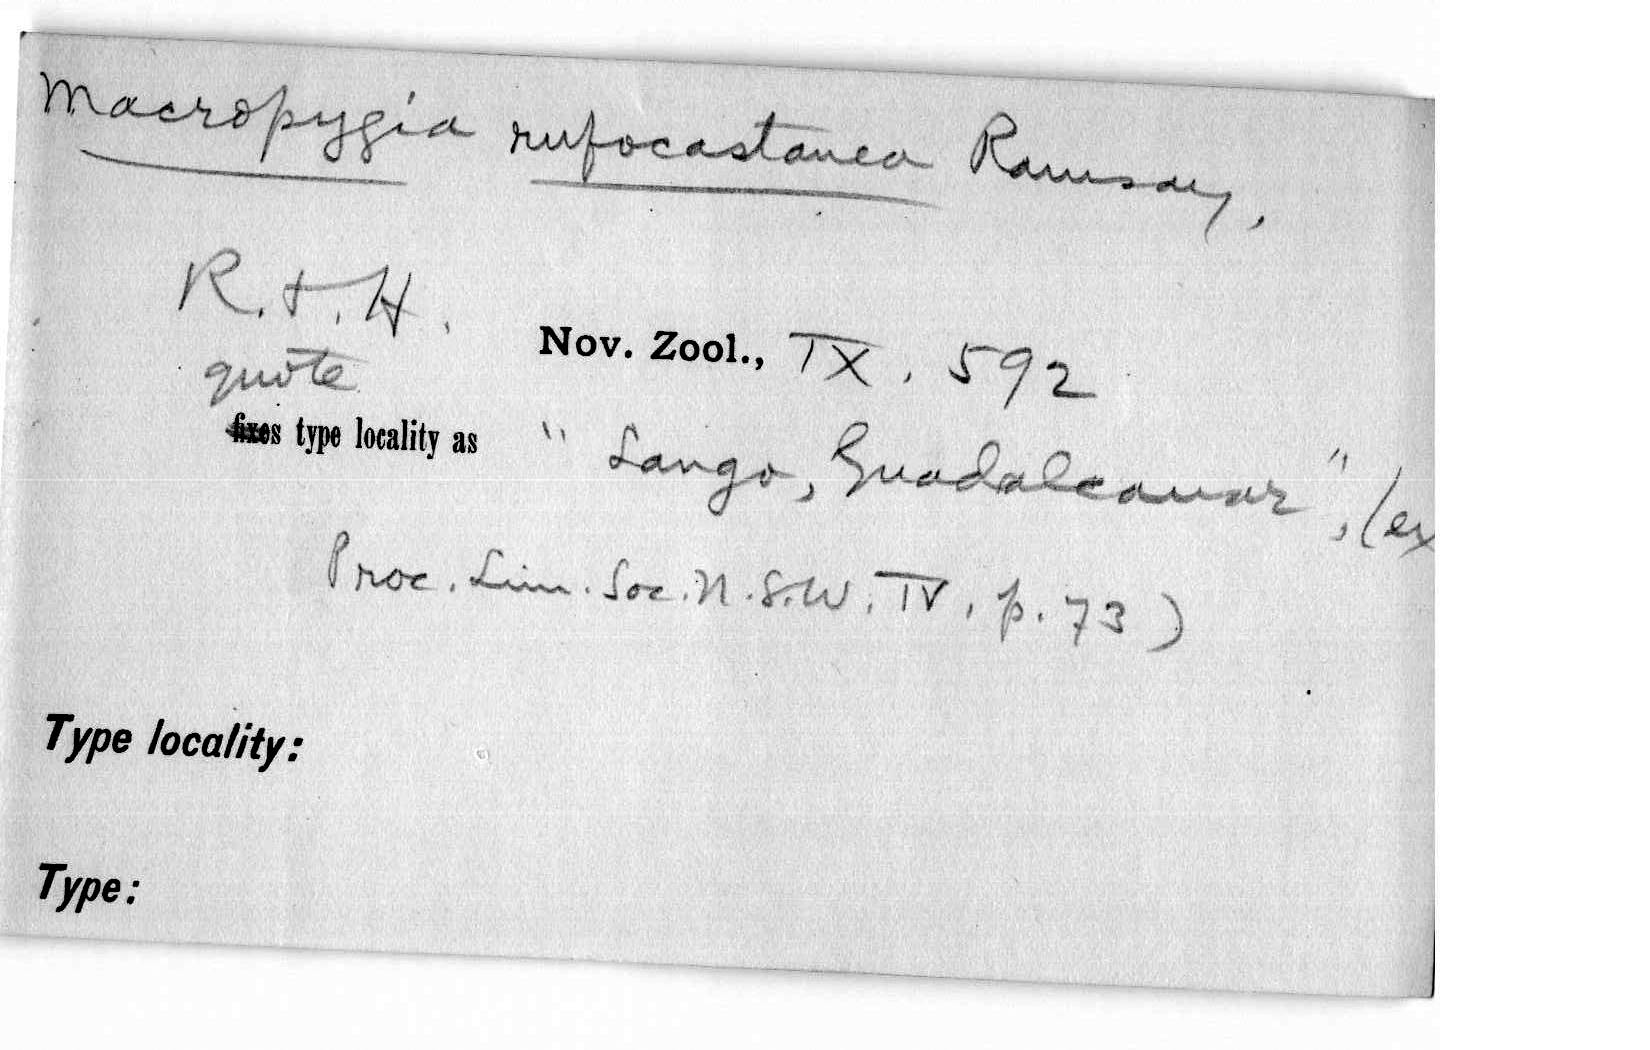 Macropygia rufocastanea Ramsay,
R. & H.
quote
Nov. Zool., IX, 592
fixes type locality as "Lango, Guadalcanar", (ex
Proc. Linn. Soc. N.S.W. IV, p. 73)
Type locality:
Type: